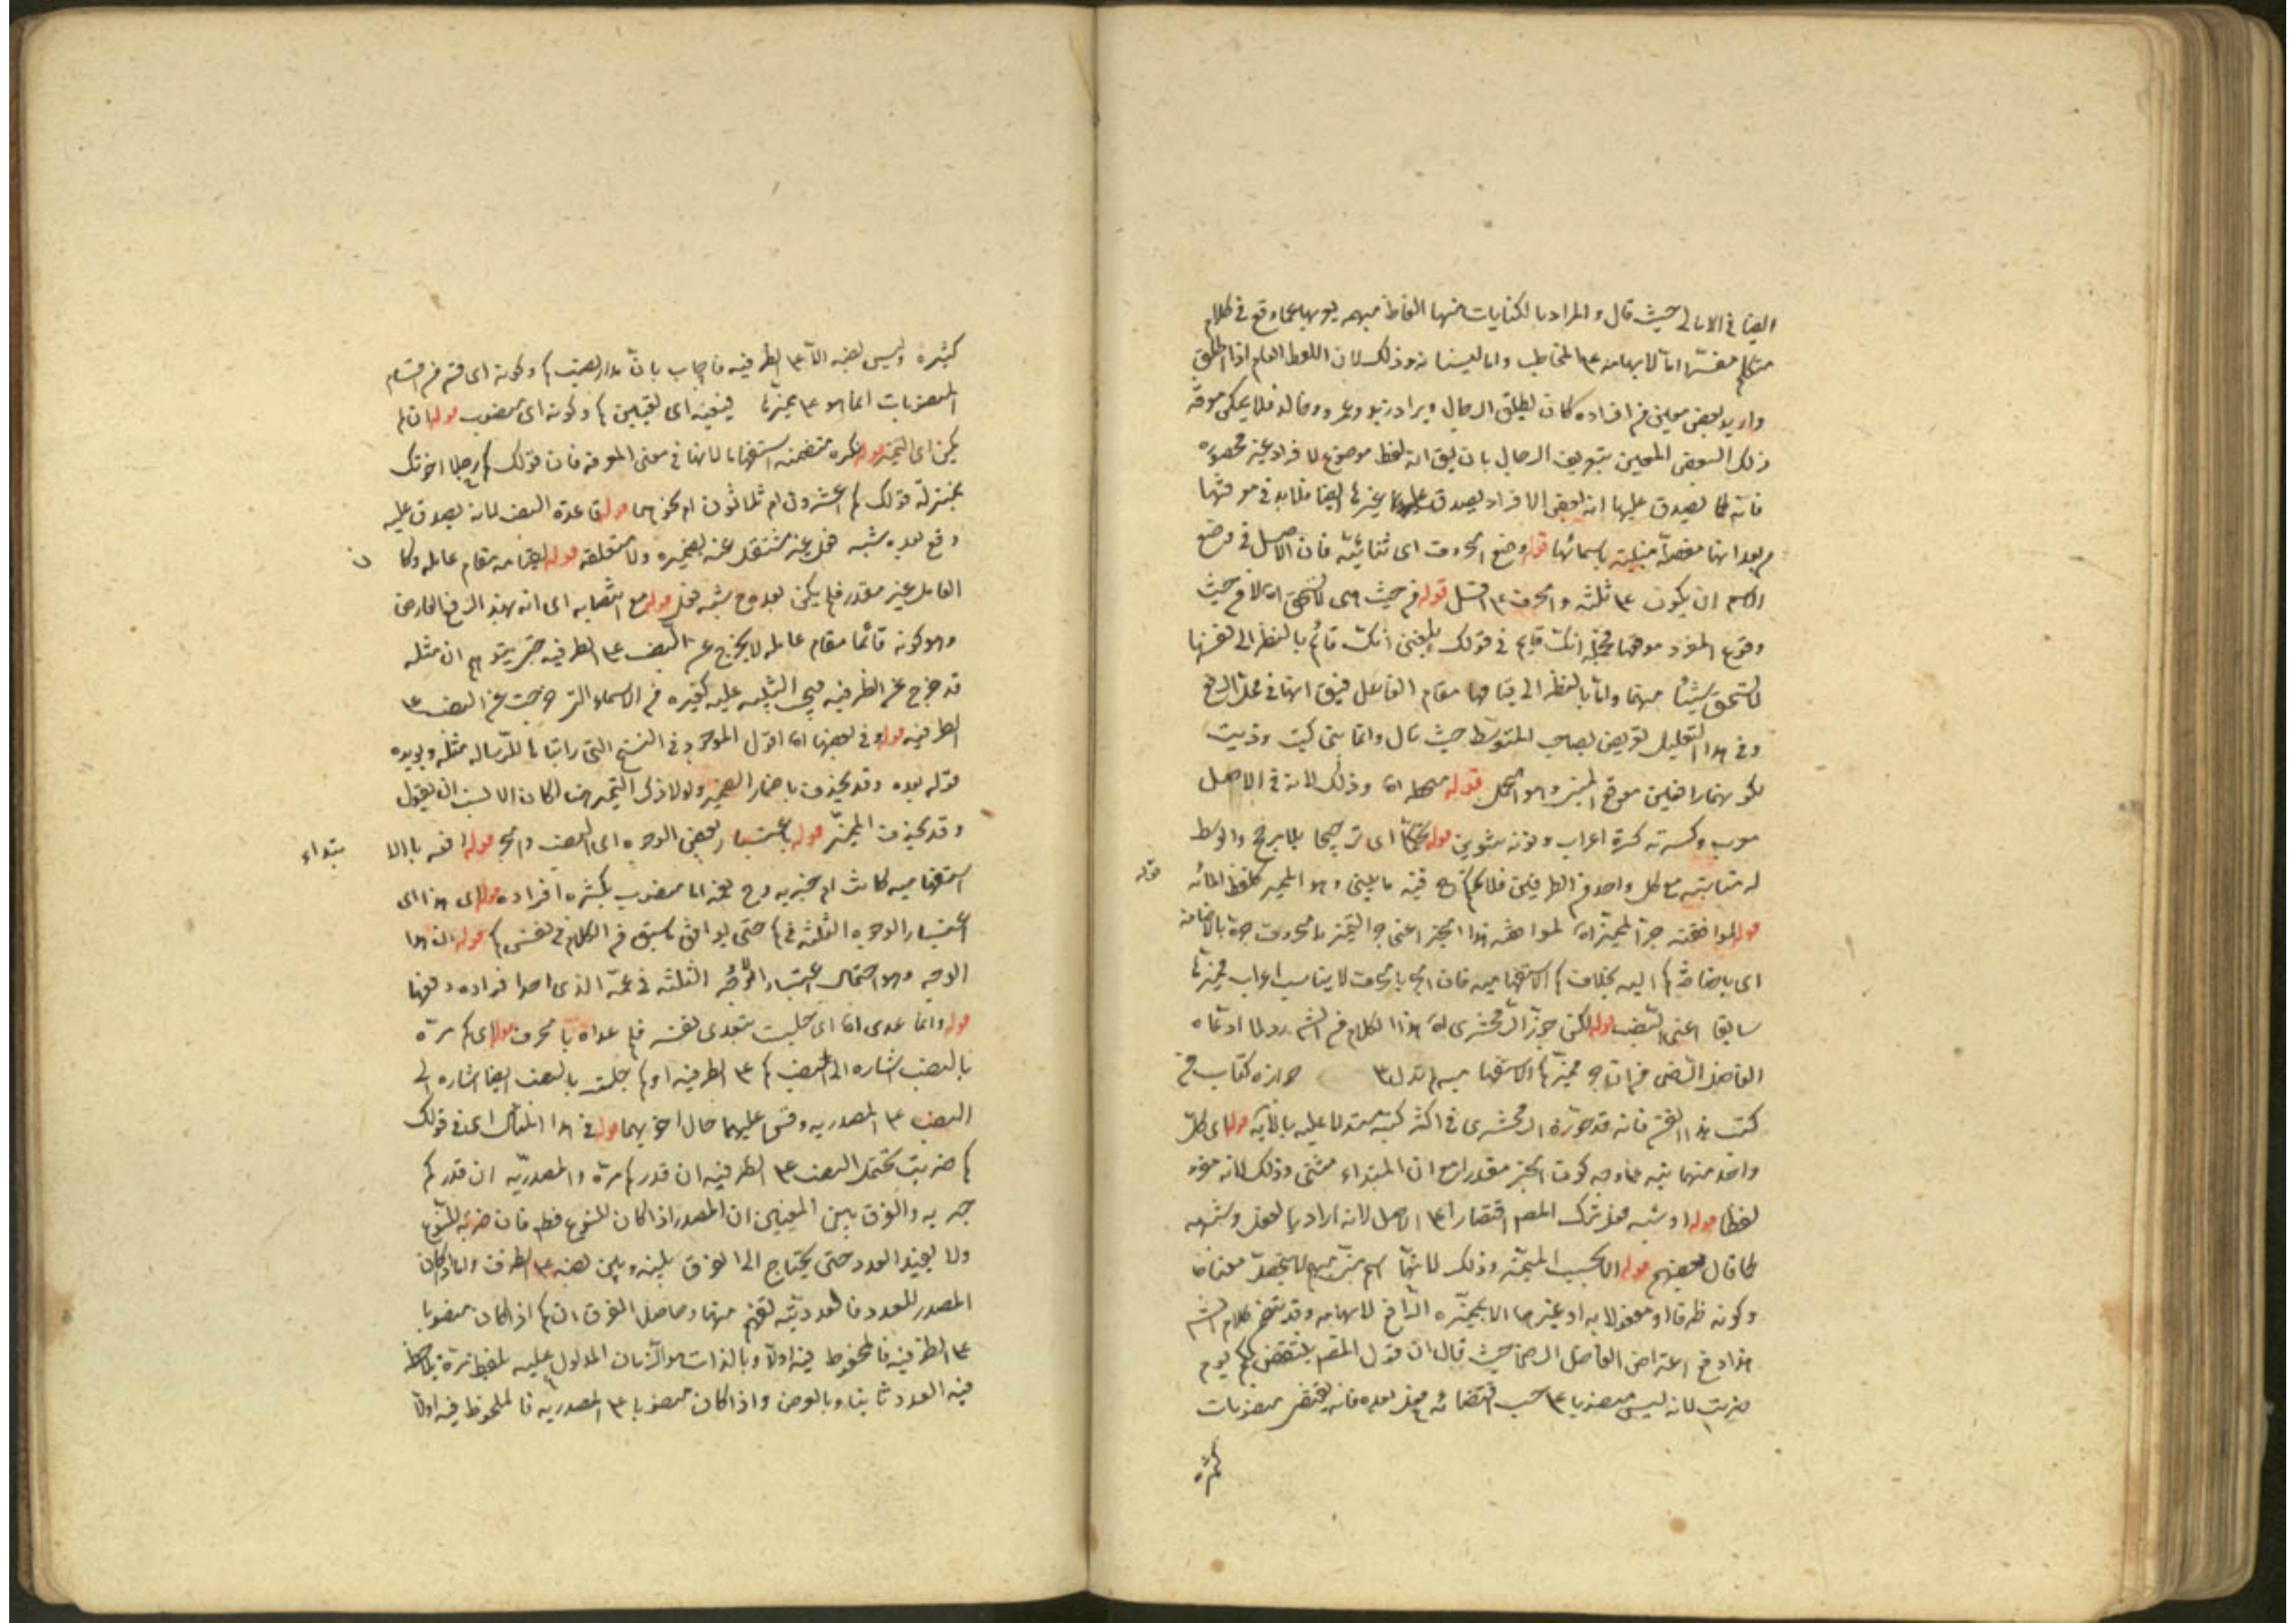 ايضا في الامالى حيث قال والمراد بالكنايات منها الفاظ مبهمه يعبر بها عما وقع في كلام
متكلم مفسّرا امّا لابهامه على المخاطب واما لنسيانه وذلك لان اللفظ العام اذا اطلق
واريد بعض معين من افراده كان يطلق الرجال ويراد زيد وعمرو وخالد فلا يمكن معرفة
ذلك البعض المعين بتعريف الرجال بان يق انه لفظ موضوع لافراد غير محصوره
فانه كما يصدق عليها انه بعض الافراد يصدق على غيرها ايضا فلا بد في معرفتها
من بعد انها مفصلة مبنية باسمائها قوله وضع الحروف اى ثنائية فان الاصل في وضع
الاسم ان يكون على ثلثه والحرف على اقل قوله من حيث هى لا تستحق اه لا من حيث
وقوع المفرد موقعها فجملة انك قايم في قولك بلغنى انك قائم بالنظر الى نفسها
لا تستحق شيئا منهما واما بالنظر الى قيامها مقام الفاعل فيق انها في محل الرفع
وفي هذا التعليل تعريض بصاحب المتوسط حيث قال وانما بنى كيت وذيت
لكونهما واقعين موقع المبنى وهو الجمل قوله اه وذلك لانه في الاصل
معرب وكسرته كسرة اعراب ونونه تنوين قوله تحكما اى ترجيحا بلا مرجح والوسط
له مناسبته مع كل واحد من الطرفين فلا يحكم فيه
قوله لموافقته جر المميز اه لموافقته هذا الجر اعنى جر التميز بالحروف جره بالاضافة
اى باضافة كم اليه بخلاف كم الاستفهاميه فان الجر بالحرف لا يناسب اعراب مميزها
سابقا اعنى النصب قوله لكن جوز الزمخشرى اه هذا الكلام من الشم رد لما ادعاه
الفاضل الرضى من ان جر مميز كم الاستفهاميه لم تدل على جوازه كتاب من
كتب هذا الفن فانه قد جوزه الزمخشرى في اكثر كتبه مستدلا عليه بالآيه قوله اى كل
واحد منهما بينه على وجه كون الخبر مفردا مع ان المبتداء مثنى وذلك لانه مفرد
لفظا قوله او شبه فعل ترك المصم اقتصارا على الاصل لانه اراد بالفعل وشبهه
كما قال بعضهم قوله الا بحسب المميز وذلك لانها اسم مبهم لا يتحصل معناها
وكونه ظرفا او مفعولا به او غيرها الا بمميزه الرافع لابهامه وقد تضمن كلام الشم
هذا دفع اعتراض الفاضل الرضى حيث قال ان قول المصم ينتقض بكم يوم
ضربت لانه ليس منصوبا على حسب اقتضائه فعل بعده فانه يقتضى منصوبات
كثيره
كثيره وليس نصبه الا على الظرفيه فاجاب بان مدار نصب كم وكونه اى قسم من اقسام
المنصوبات انما هو على مميزها فيفيده اى تعيين كم وكونه اى منصوب قوله ان لم
يكن اى المميز قوله نكره متضمنه استفهاما لانها في معنى المعرفه فان قولك كم رجلا اخوتك
بمنزلة قولك اعشرون ام ثلاثون ام نحو هما قوله قاعدة النصب لانه يصدق عليه
وقع بعده شبه فعل غير مشتغل عنه بضميره ولا متعلقه قوله لقيامه مقام عامله وكان
العامل غير مقدر فلم يكن بعده ح شبه فعل قوله مع انتصابه اى انه بهذا الرفع العارض
وهو كونه قائما مقام عامله لا يخرج عن النصب على الظرفيه حتى يتوهم ان مثله
قد خرج عن الظرفيه فيجب التنبيه عليه كغيره من الاسماء التى خرجت عن النصب على
الظرفيه قوله وفي بعضها اه اقول الموجود في النسخ التى رايناها للرساله مثله ويويده
قوله بعده وقد يحذف باضمار المميز ولولا ذكر التميز هنا لكان الانسب ان يقول
وقد يحذف المميز قوله باعتبار بعض الوجوه اى النصب والجر قوله رفعه بالابتداء
استفهاميه كانت ام خبريه وح عمه اما منصوب بكثره افراده قوله اى هذا اى
اعتبار الوجوه الثلثه في كم حتى يوافق ما سبق من الكلام في نفس كم قوله ان هذا
الوجه وهو احتمال اعتبار الوجوه الثلثه في عمة الذى احد افراده رفعها
قوله وانما عدى اه اى حلبت يتعدى بنفسه فلم عداه بالحرف قوله اى كم مرة
بالنصب اشاره الى نصب كم على الظرفيه او كم حلبة بالنصب ايضا اشاره الى
النصب على المصدريه وقس عليهما حال اخويهما قوله في هذا المثال اى في قولك
كم ضربت يحتمل النصب على الظرفيه ان قدر كم مرة والمصدريه ان قدر كم
ضربه والفرق بين المعنيين ان المصدر اذا كان للنوع فظ فان ضربه للنوع
ولا يفيد العدد حتى يحتاج الى الفرق بينه وبين نصبه على الظرف واما اذا كان
المصدر للعدد فالعدديه تفهم منهما وحاصل الفرق ان كم اذا كان منصوبا
على الظرفيه فالملحوظ فيه اولا وبالذات هو الزمان المدلول عليه بلفظ مرة ويلاحظ
فيه العدد ثانيا وبالعرض واذا كان منصوبا على المصدريه فالملحوظ فيه اولا